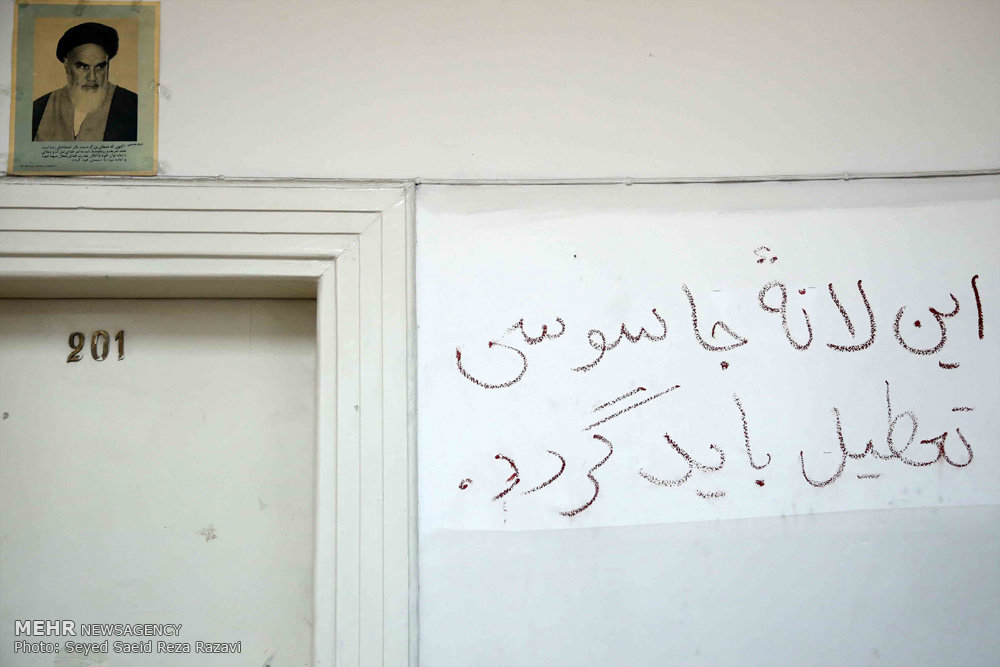 201
این لانهٔ جاسوسی
تعطیل باید گردد.
MEHR NEWSAGENCY
Photo: Seyed Saeid Reza Razavi